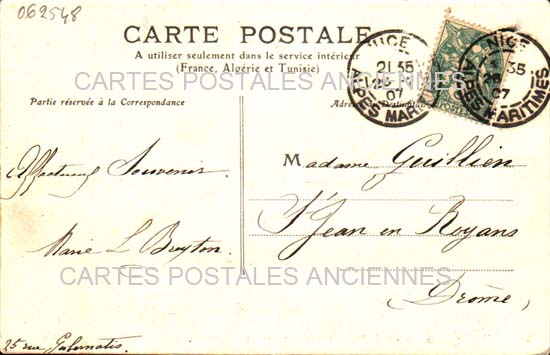 062548
CARTE POSTALE
A utiliser seulement dans le service intérieur
(France, Algérie et Tunisie)
NICE
21 35
28
07
ALPES MARITIMES
NICE
35
28
07
ALPES MARITIMES
CARTES POSTALES ANCIENNES
Partie réservée à la Correspondance
Adresse du Destinataire
Affectueux Souvenir
Marie L
25 rue Gubernatis.
Madame Guillien
St Jean en Royans
CARTES POSTALES ANCIENNES
(Drôme)